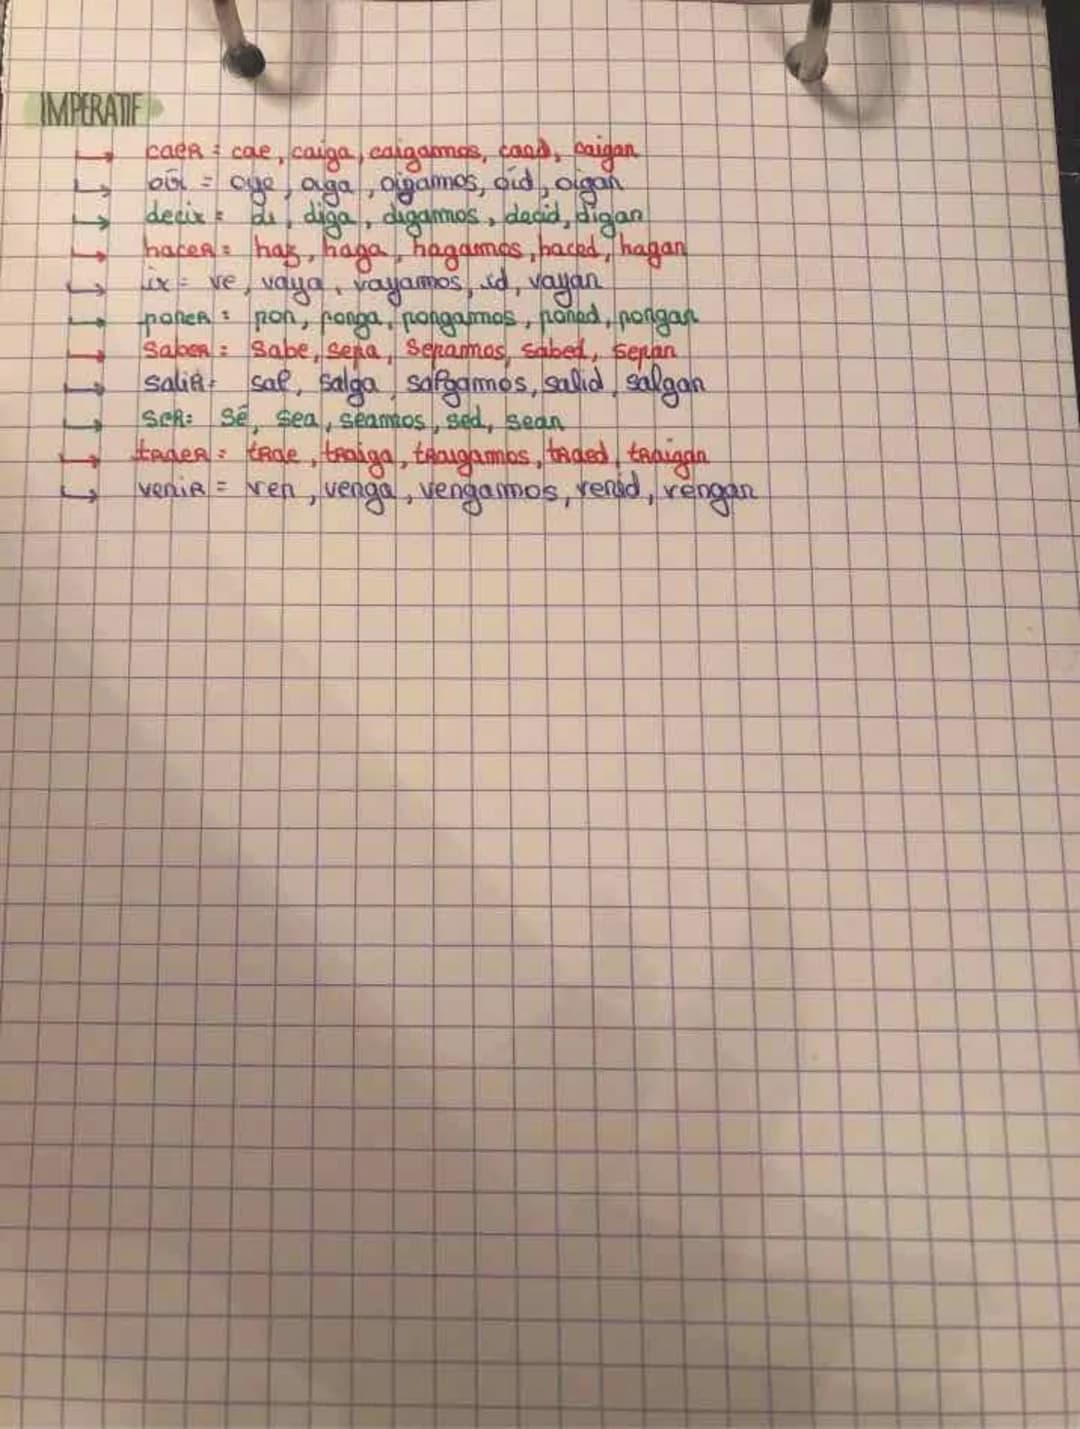 IMPERATIF
↳ caer = cae, caiga, caigamos, caed, caigan
↳ oír = oye, oiga, oigamos, oíd, oigan
↳ decir = di, diga, digamos, decid, digan
↳ hacer = haz, haga, hagamos, haced, hagan
↳ ir = ve, vaya, vayamos, id, vayan
↳ poner : pon, ponga, pongamos, poned, pongan
↳ saber : sabe, sepa, sepamos, sabed, sepan
↳ salir = sal, salga, salgamos, salid, salgan
↳ ser : sé, sea, seamos, sed, sean
↳ traer = trae, traiga, traigamos, traed, traigan
↳ venir = ven, venga, vengamos, venid, vengan